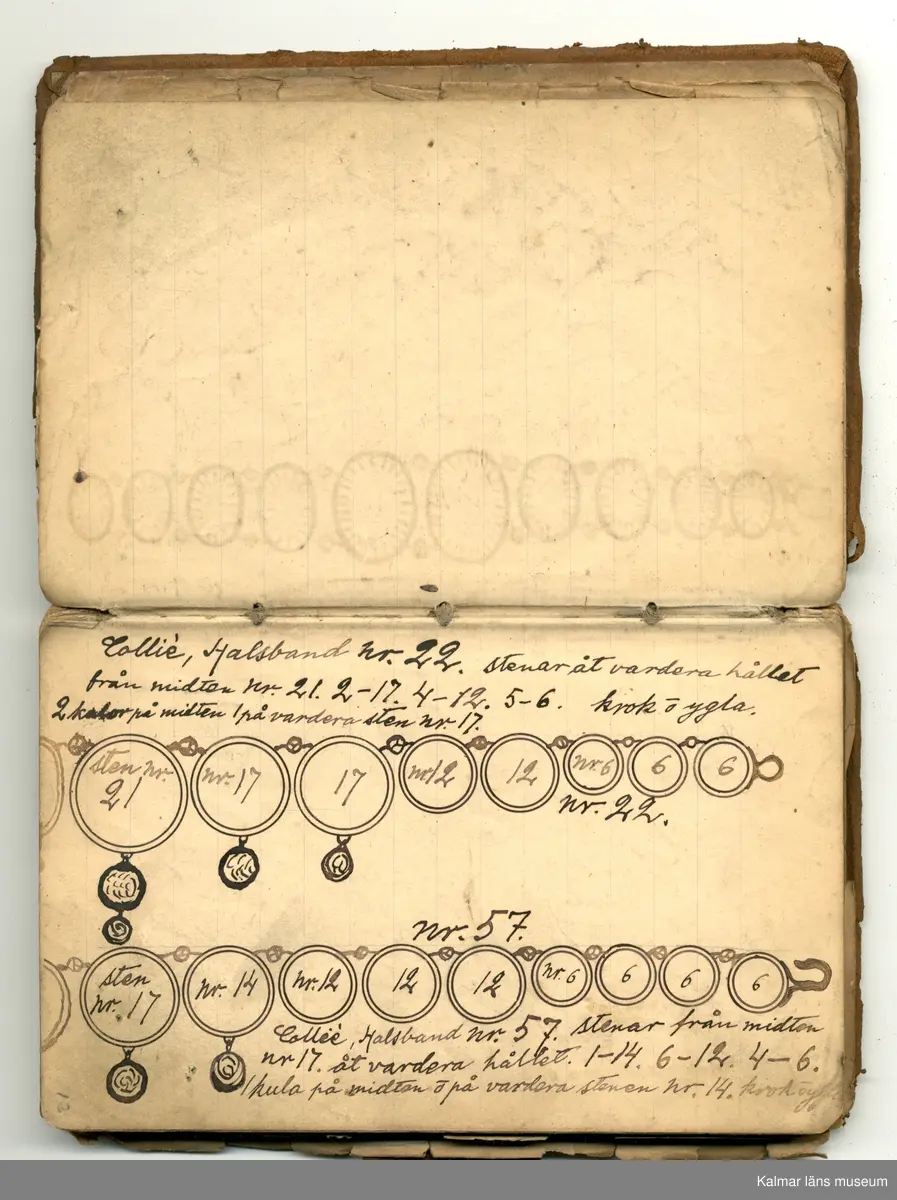 Collié, Halsband nr. 22. stenar åt vardera hållet
från midten nr. 21. 2-17. 4-12. 5-6. krok ō ygla.
2 kulor på midten 1 på vardera sten nr. 17.
sten nr. 21
nr. 17
17
nr 12
12
nr. 6
6
6
nr. 22.
nr. 57.
sten nr. 17
nr. 14
nr. 12
12
12
nr. 6
6
6
6
Collié, Halsband nr. 57. stenar från midten
nr 17. åt vardera hållet. 1-14. 6-12. 4-6.
1 kula på midten ō på vardera stenen nr. 14. krok ō ygla
Kalmar läns museum